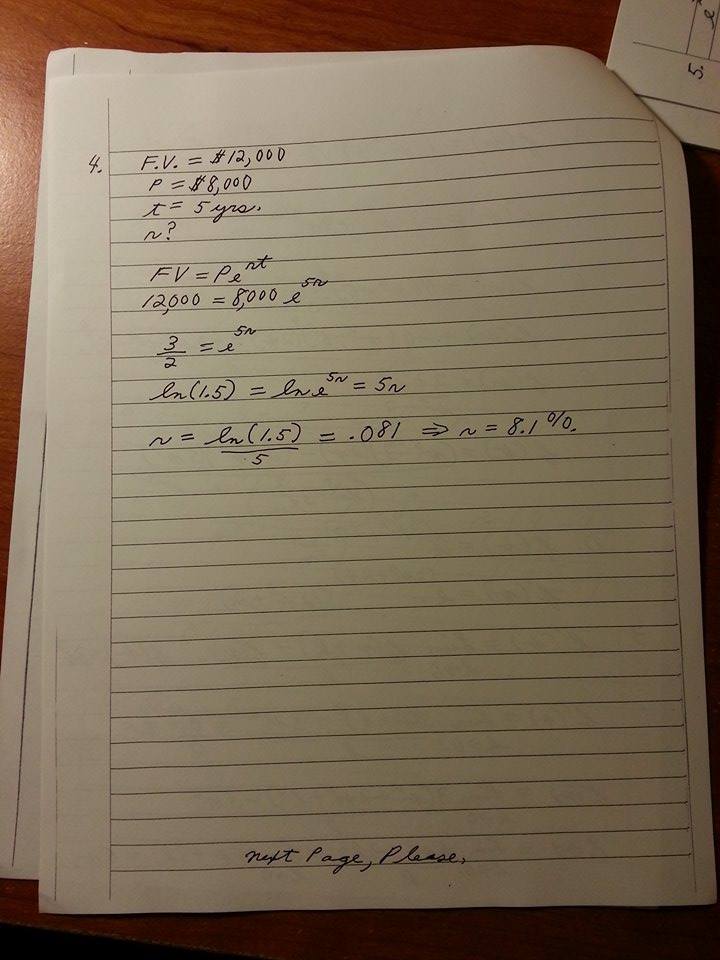 4. F.V. = $12,000
P = $8,000
t = 5 yrs.
r?
FV = Pe^rt
12,000 = 8,000 e^5r
3/2 = e^5r
ln(1.5) = ln e^5r = 5r
r = ln(1.5)/5 = .081 ⇒ r = 8.1%.
next Page, Please.
5.
e